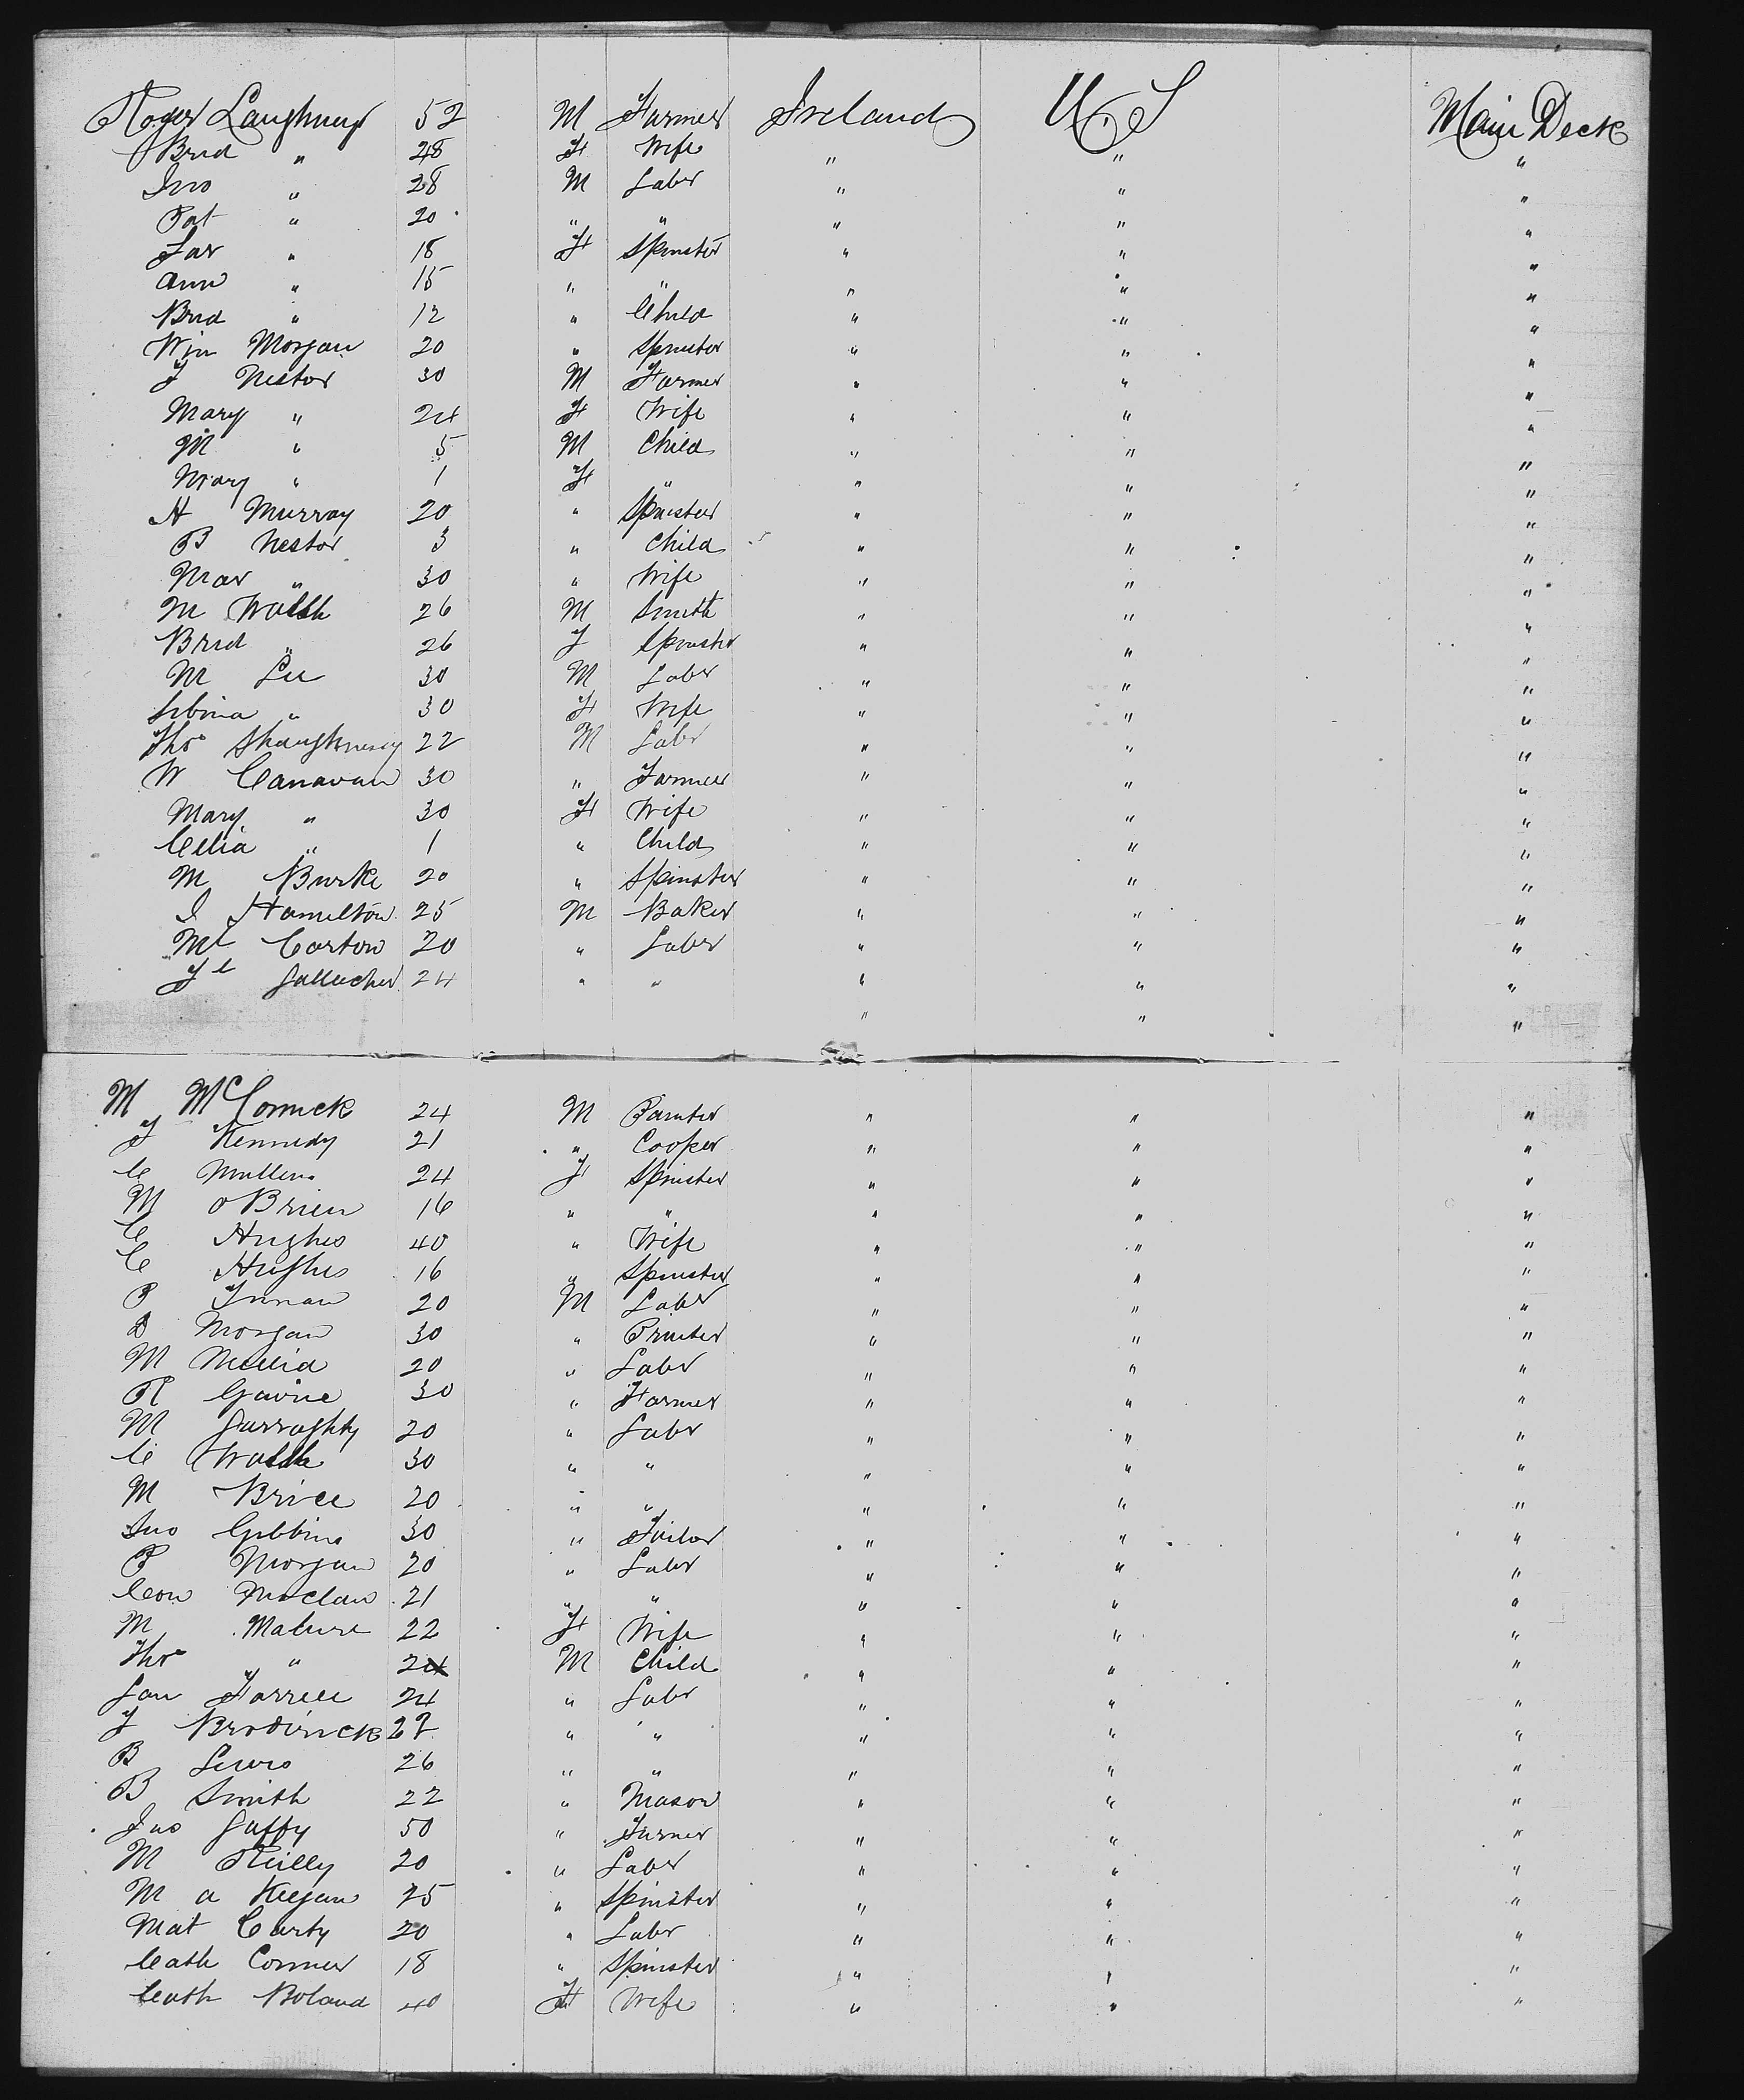 Roger Laughnup 52 M Farmer Ireland U.S Main Deck
Brid " 48 F Wife " " "
Jno " 28 M Labr " " "
Pat " 20 " " " " "
Sar " 18 F Spinster " " "
Ann " 15 " " " " "
Brid " 12 " Child " " "
Win Morgan 20 " Spinster " " "
J Nestor 30 M Farmer " " "
Mary " 24 F Wife " " "
M " 5 M Child " " "
Mary " 1 F " " " "
H Murray 20 " Spinster " " "
B Nestor 3 " Child " " "
Mar " 30 " Wife " " "
M Walsh 26 M Smith " " "
Brid " 26 F Spinster " " "
M Lee 30 M Labr " " "
Sibina " 30 F Wife " " "
Thos Shaughnessy 22 M Labr " " "
W Canavan 30 " Farmer " " "
Mary " 30 F Wife " " "
Celia " 1 " Child " " "
M Burke 20 " Spinster " " "
J Hamilton 25 M Baker " " "
Ml Carton 20 " Labr " " "
Jl Gallacher 24 " " " " "
" " "
M McCormick 24 M Painter " " "
J Kennedy 21 " Cooper " " "
C Mullens 24 F Spinster " " "
M O Brien 16 " " " " "
C Hughes 40 " Wife " " "
C Hughes 16 " Spinster " " "
P 20 M Labr " " "
D Morgan 30 " Printer " " "
M Mellia 20 " Labr " " "
R Gavine 30 " Farmer " " "
M Garraghty 20 " Labr " " "
C Walsh 30 " " " " "
M Brice 20 " " " " "
Jno Gibbins 30 " Tailor " " "
P Morgan 20 " Labr " " "
Con 21 " " " " "
M Malure 22 F Wife " " "
Thos " 2 M Child " " "
Lau Farrell 24 " Labr " " "
J Broderick 22 " " " " "
B Lewis 26 " " " " "
B Smith 22 " Mason " " "
Jno Gaffy 50 " Farmer " " "
M Reilly 20 " Labr " " "
M A Keegan 25 " Spinster " " "
Mat Carty 20 " Labr " " "
Cath Conner 18 " Spinster " " "
Cath Boland 40 F Wife " " "